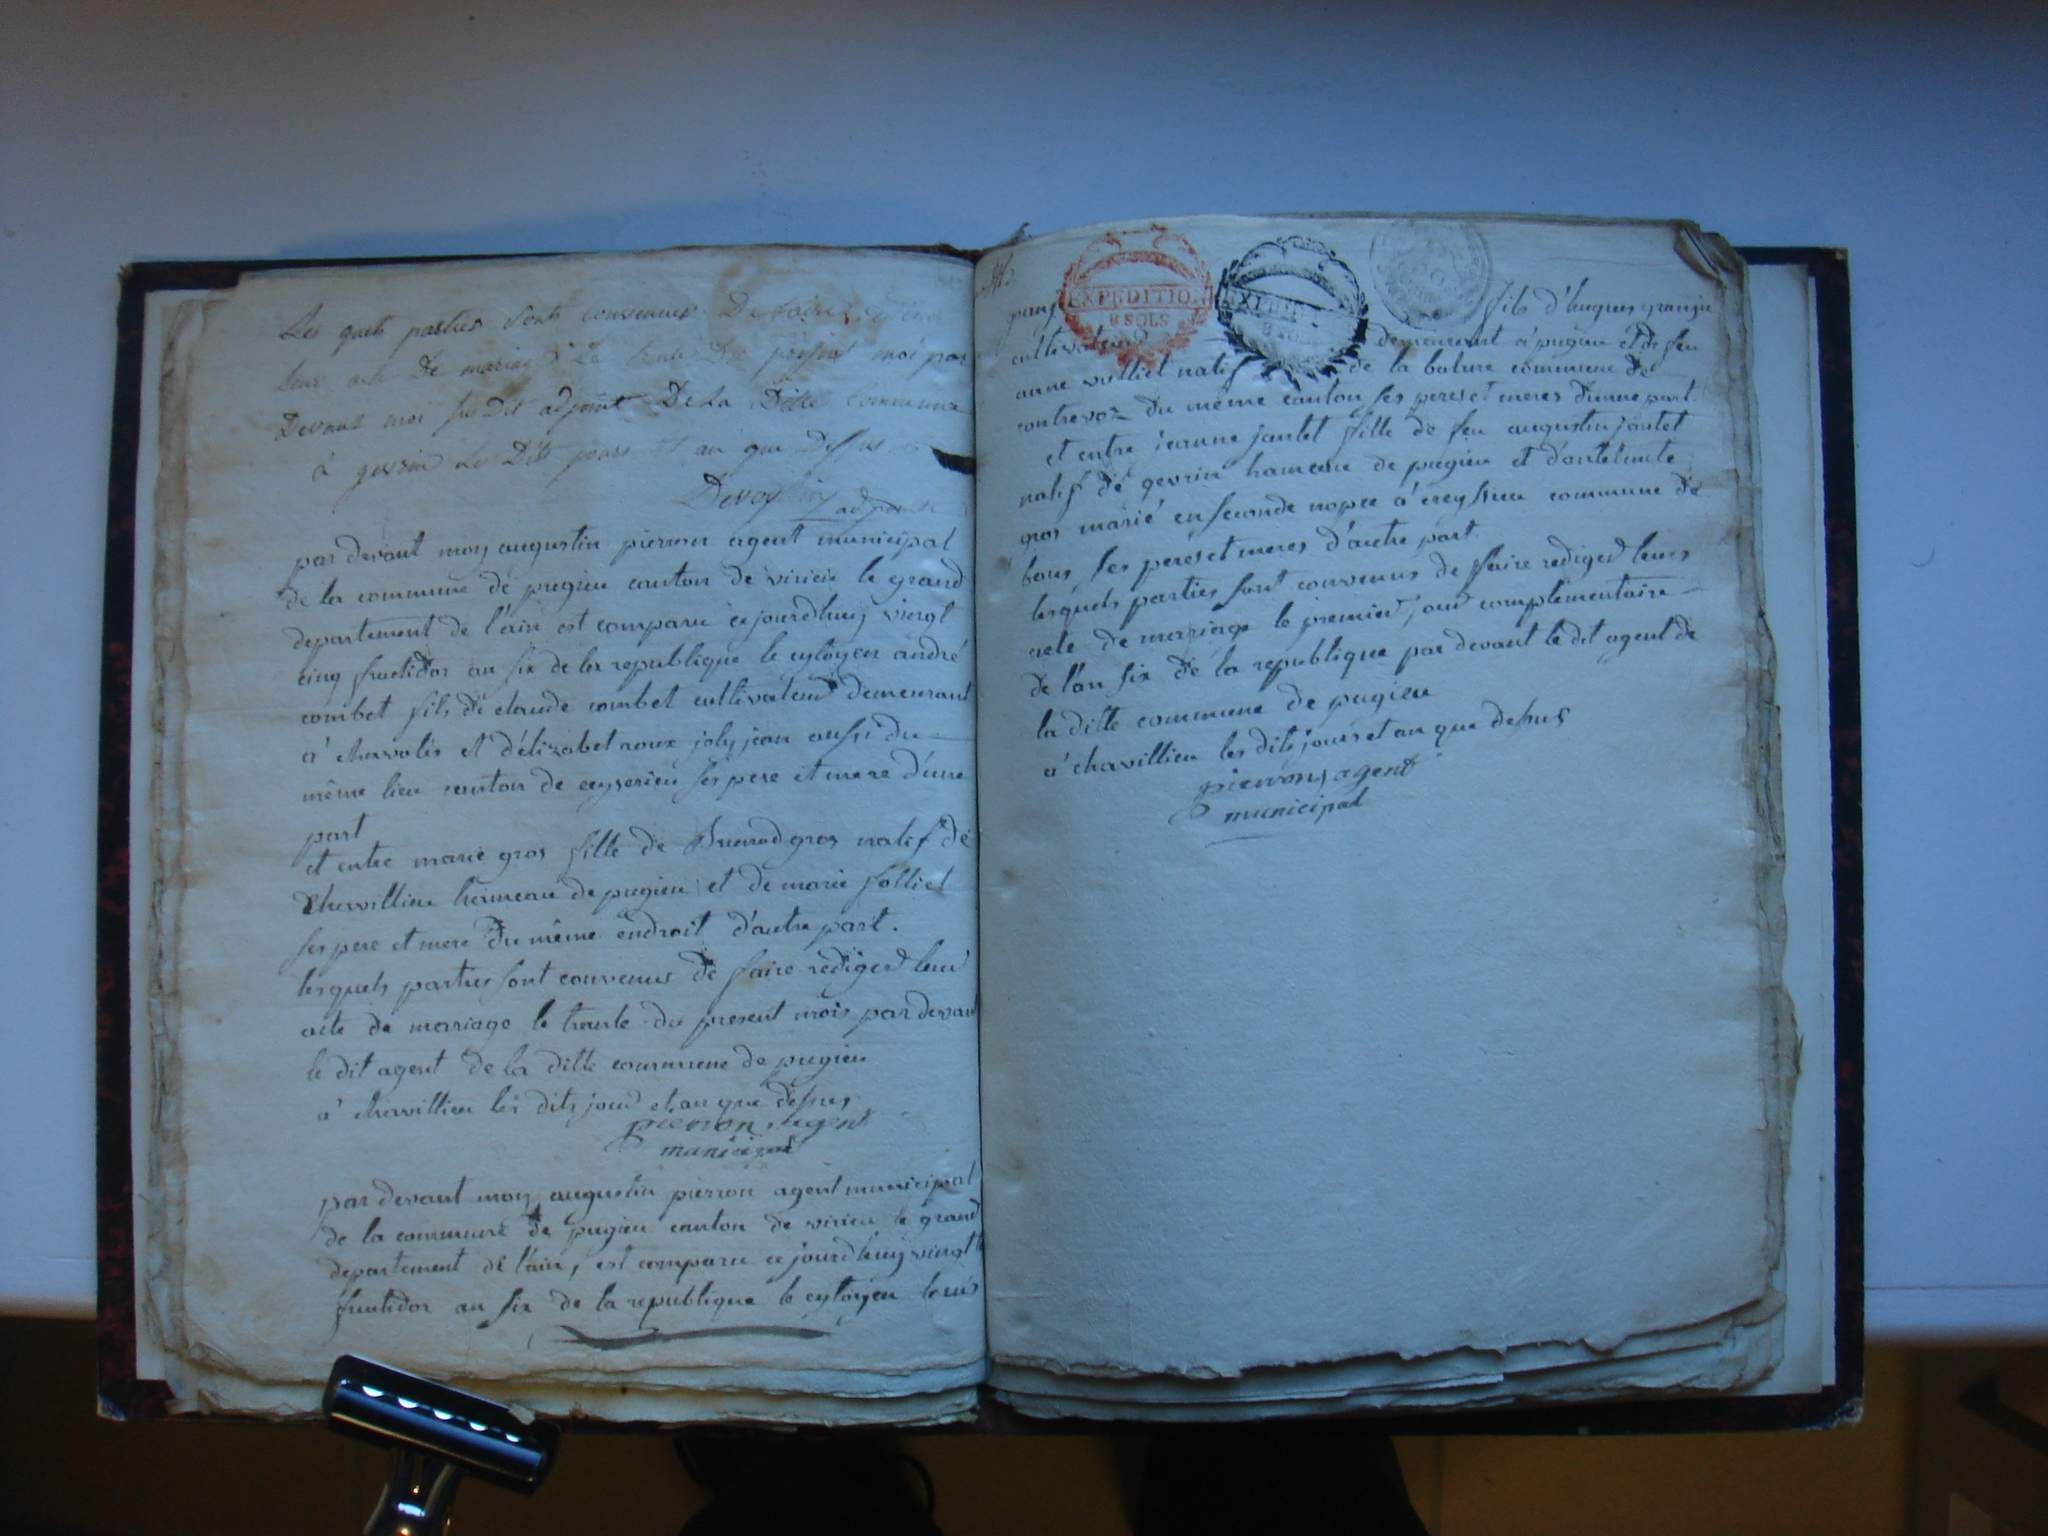 Les quels parties sont convenues De
leur acte De mariage Le trente Du present moi par
Devant moi su Dit adjoint De La Ditte commune
à gevrin les Dits jours et an que Dessus
adjoint
par devant moy augustin pierron agent municipal
de la commune de pugieu canton de virieu le grand
departement de l'ain est comparu cejourdhuy vingt
cinq fructidor an six de la republique le cytoyen andré
combet fils de claude combet cultivateur demeurant
a' chavolis et d'élizabet roux joly jean aussi du
même lieu canton de ceyserieu ses pere et mere d'une
part
et entre marie gros fille de gros natif de
Chavillieu hameau de pugieu et de marie folliet
ses pere et mere du même endroit d'autre part.
lesquels parties sont convenus de faire rediger leur
acte de marriage le trante du present mois par devant
le dit agent de la ditte commune de pugieu
a' chavillieu les dits jour et an que desus
pierron, agent
municipal
par devant moy augustin pierron agent municipal
de la commune de pugieu canton de virieu le grand
departement de l'ain, est comparu cejourdhuy vingt
fructidor an six de la republique le cytoyen louis
EXPEDITION
8 SOLS
fils d'hugues
cultivateur demeurant à pugieu et de feu
anne vulliet natif de la balure commune de
contrevoz du même canton ses peres et meres d'une part.
et entre jeanne jantet fille de feu augustin jantet
natif de gevrin hameau de pugieu et
gros marié en seconde nopce à creyssieu commune de
bons ses peres et meres d'autre part.
lesquels parties sont convenus de faire rediger leurs
acte de mariage le premier jour complementaire
de l'an six de la republique par devant le dit agent de
la ditte commune de pugieu
a' chavillieu les dits jours et an que desus
pierron, agent
municipal